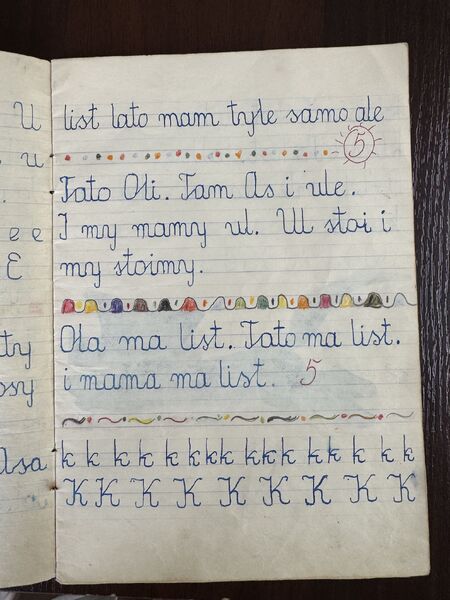 U
u
e e
E
ty
osy
Asa
list lato mam tyle samo ale
5
Tato Oli. Tam As i ule.
I my mamy ul. Ul stoi i
my stoimy.
Ola ma list. Tato ma list.
i mama ma list. 5
k k k k k kkk kkk kk k k k
K K K K K K K K K